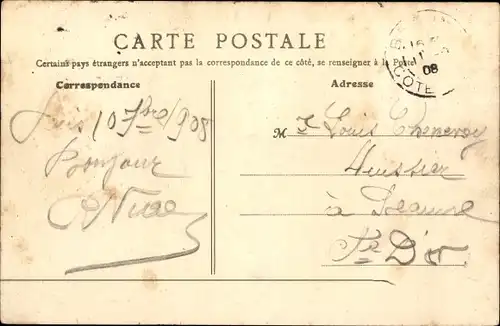 CARTE POSTALE
Certains pays étrangers n'acceptent pas la correspondance de ce côté, se renseigner à la Poste
Correspondance
Adresse
10 7bre 1908
Bonjour
M r Louis
Huissier
à Beaune
Côte D'or
08
CÔTE